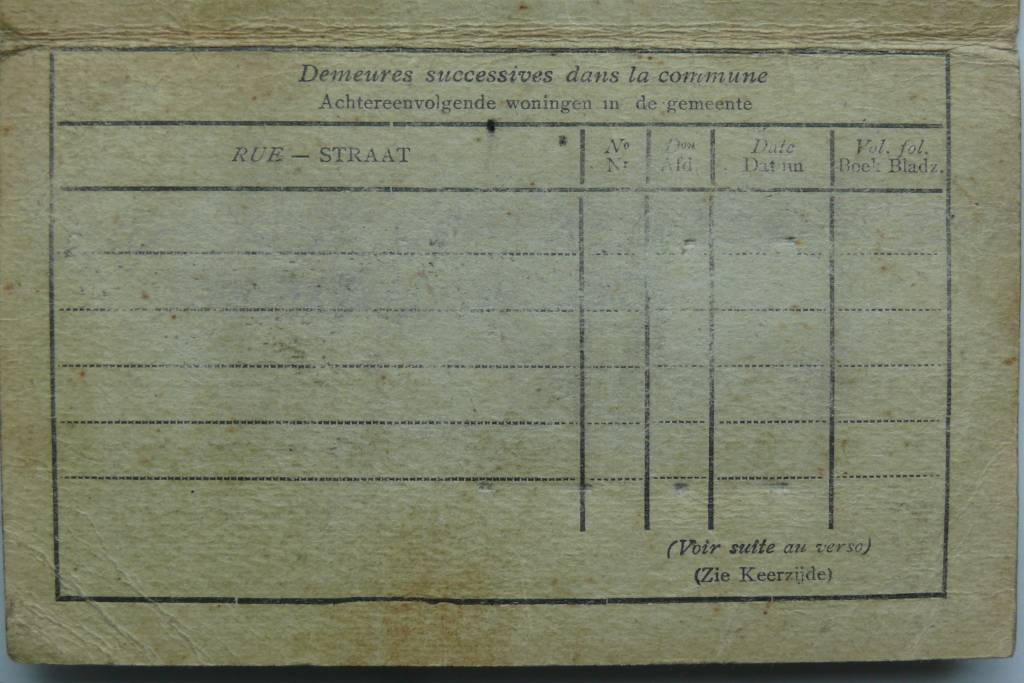 Demeures successives dans la commune
Achtereenvolgende woningen in de gemeente
RUE — STRAAT
Nº Don Date Vol. fol.
Nr Afd. Datum Boek Bladz.
(Voir suite au verso)
(Zie Keerzijde)